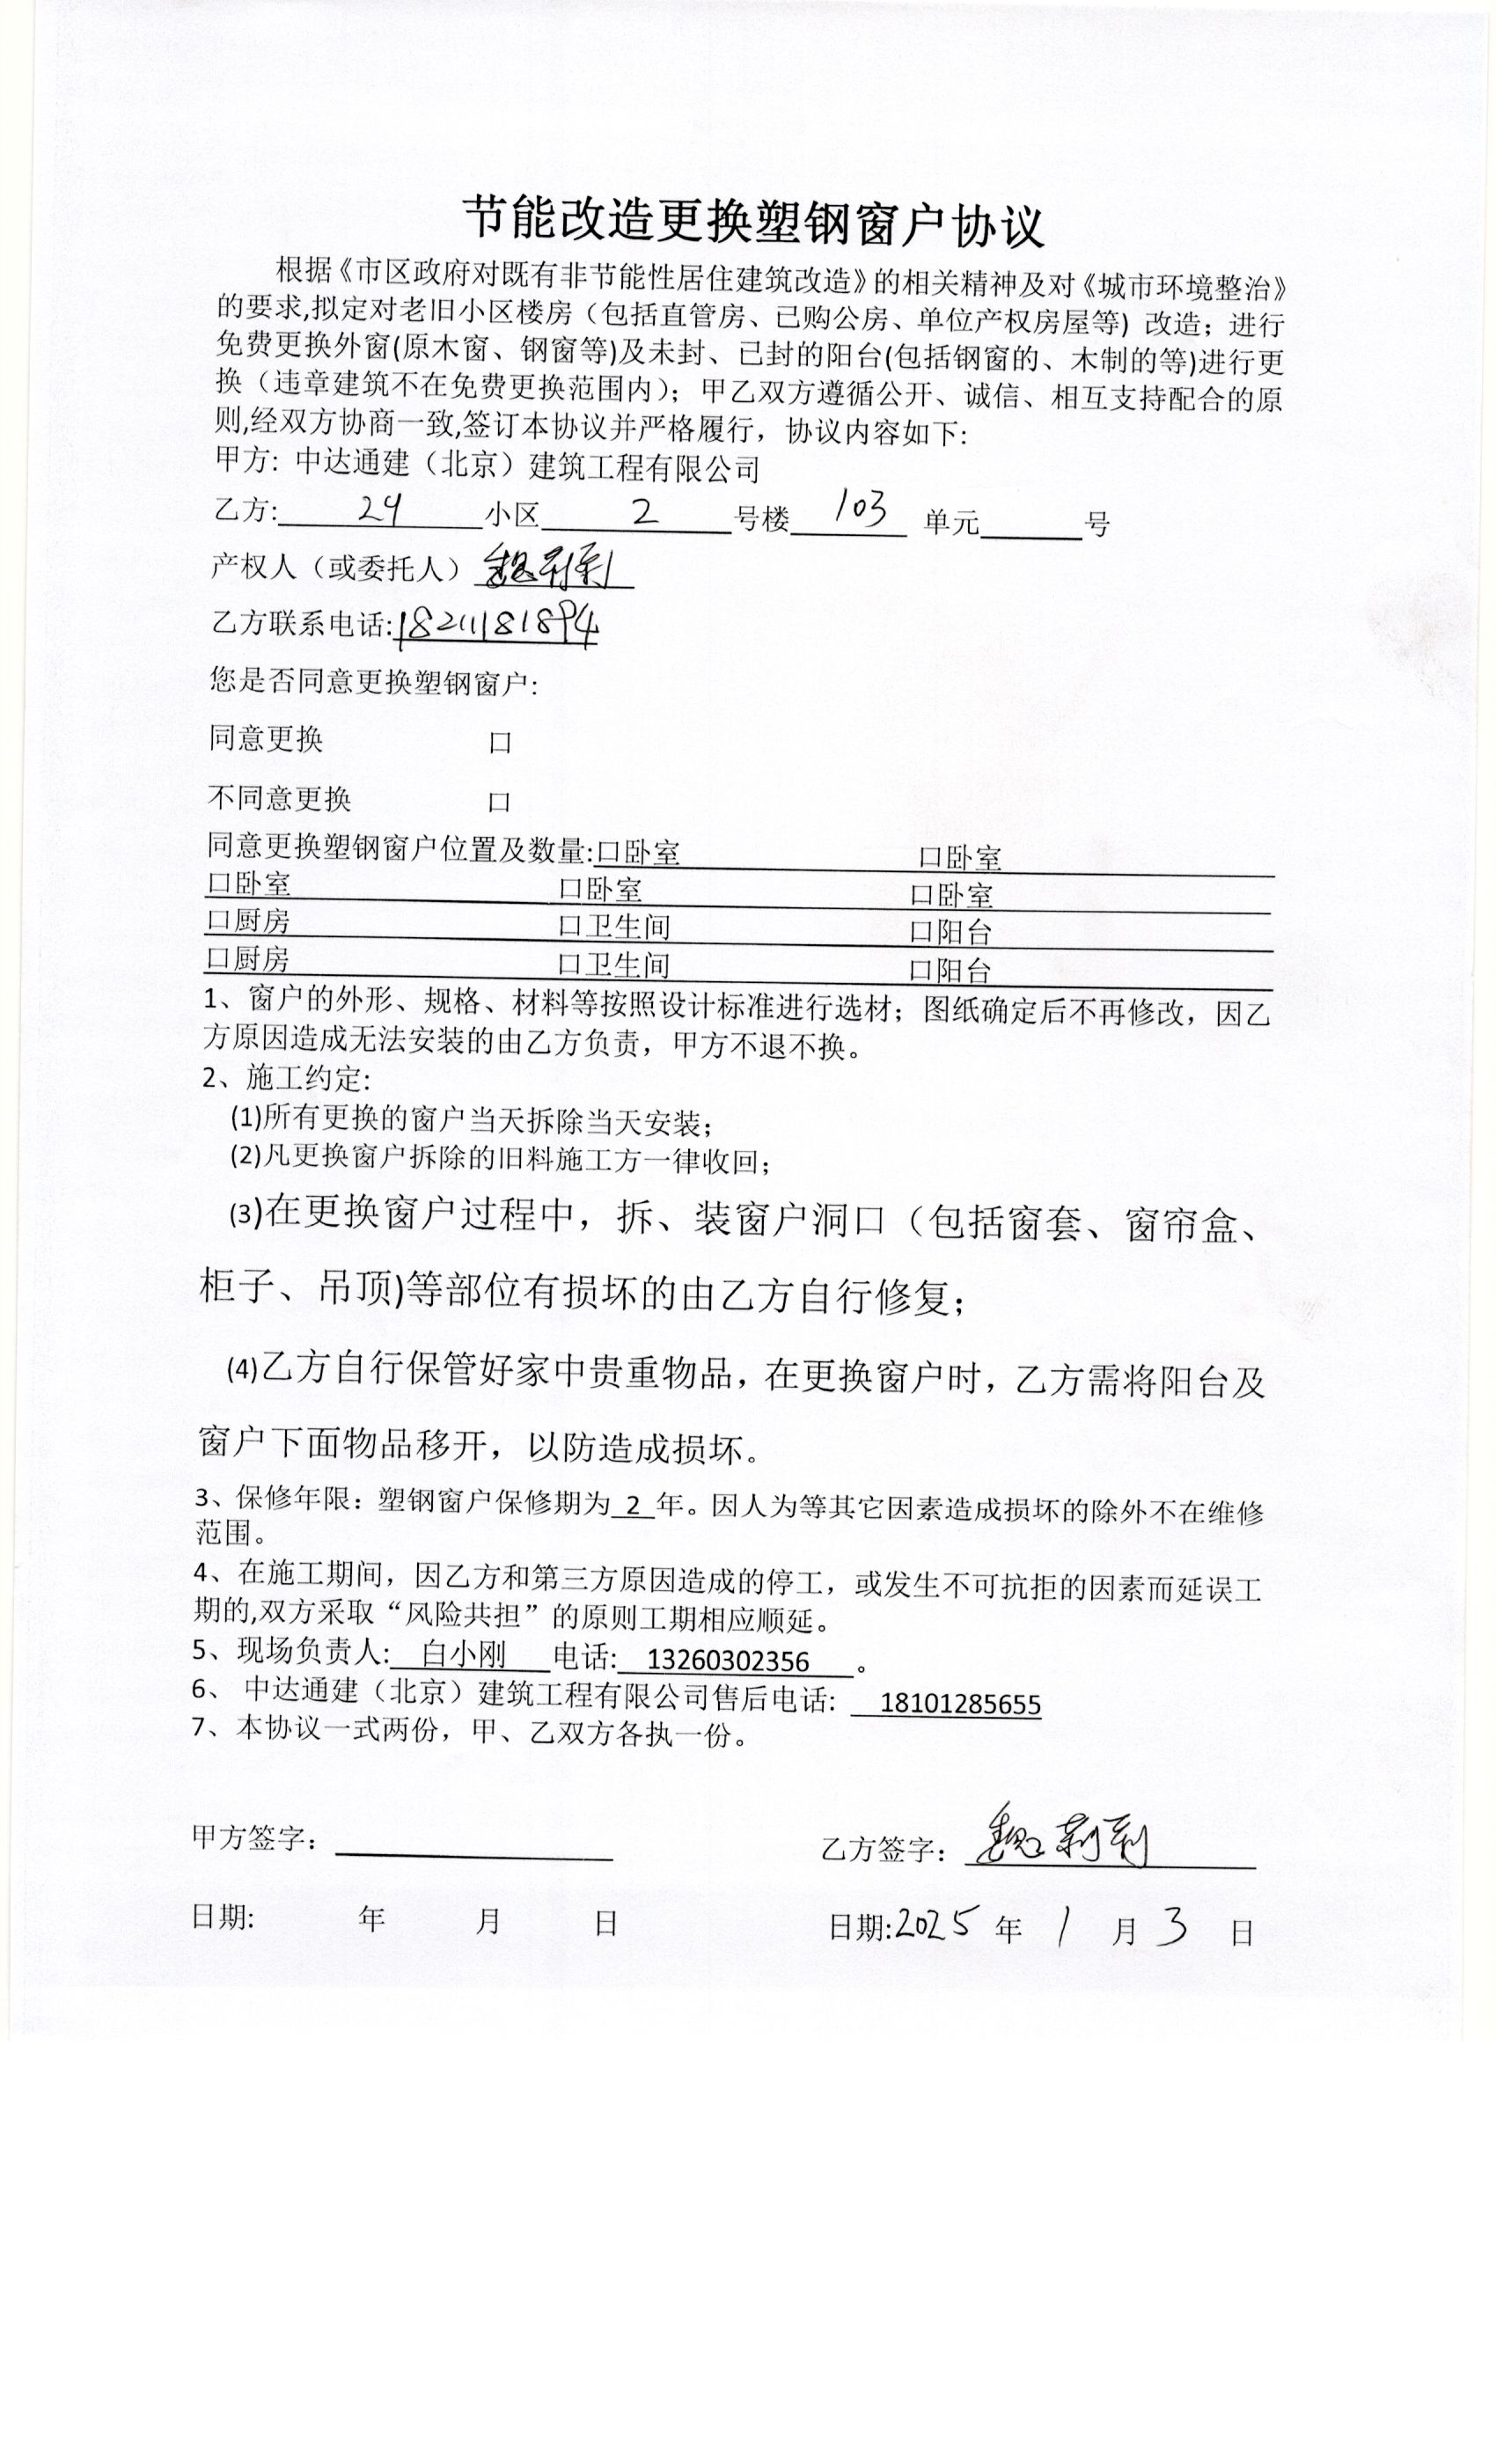 节能改造更换塑钢窗户协议
根据《市区政府对既有非节能性居住建筑改造》的相关精神及对《城市环境整治》
的要求,拟定对老旧小区楼房（包括直管房、已购公房、单位产权房屋等) 改造；进行
免费更换外窗(原木窗、钢窗等)及未封、已封的阳台(包括钢窗的、木制的等)进行更
换（违章建筑不在免费更换范围内）；甲乙双方遵循公开、诚信、相互支持配合的原
则,经双方协商一致,签订本协议并严格履行，协议内容如下:
甲方: 中达通建（北京）建筑工程有限公司
乙方: 24 小区 2 号楼 103 单元 号
产权人（或委托人）魏莉莉
乙方联系电话:18211181894
您是否同意更换塑钢窗户:
同意更换 口
不同意更换 口
同意更换塑钢窗户位置及数量:口卧室 口卧室
口卧室 口卧室 口卧室
口厨房 口卫生间 口阳台
口厨房 口卫生间 口阳台
1、窗户的外形、规格、材料等按照设计标准进行选材；图纸确定后不再修改，因乙
方原因造成无法安装的由乙方负责，甲方不退不换。
2、施工约定:
(1)所有更换的窗户当天拆除当天安装；
(2)凡更换窗户拆除的旧料施工方一律收回；
(3)在更换窗户过程中，拆、装窗户洞口（包括窗套、窗帘盒、
柜子、吊顶)等部位有损坏的由乙方自行修复；
(4)乙方自行保管好家中贵重物品，在更换窗户时，乙方需将阳台及
窗户下面物品移开，以防造成损坏。
3、保修年限：塑钢窗户保修期为 2 年。因人为等其它因素造成损坏的除外不在维修
范围。
4、在施工期间，因乙方和第三方原因造成的停工，或发生不可抗拒的因素而延误工
期的,双方采取“风险共担”的原则工期相应顺延。
5、现场负责人: 白小刚 电话: 13260302356 。
6、 中达通建（北京）建筑工程有限公司售后电话: 18101285655
7、本协议一式两份，甲、乙双方各执一份。
甲方签字： 乙方签字：魏莉莉
日期: 年 月 日 日期:2025 年 1 月 3 日